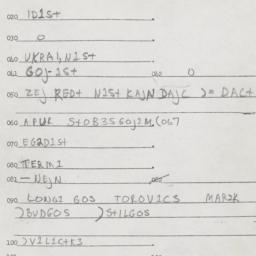 020 IDIS+
030 0
040 UKRAI,NIS+
041 GOJ-IS+ 042 0
050 ZEJ RED+ NIS+ KAJN DAJC )= DAC+
060 APUL S+OB35GOJIM.(067
070 EG2DIS+
080 TERMI
081 - NEJN 082
090 LONGI GOS TOROVICS MARIK
)BUDGOS )S+ILGOS
100 )VILIC+KI